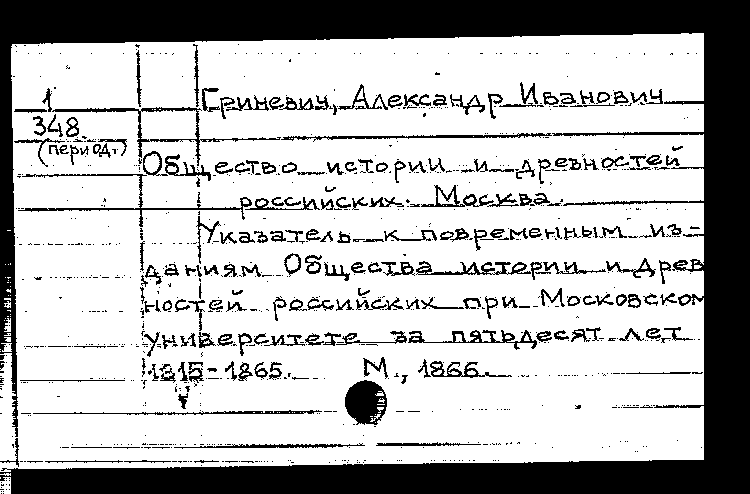 1
348.
(период.)
Гриневич, Александр Иванович
Общество истории и древностей
российских. Москва.
Указатель к повременным из-
даниям Общества истории и древ
ностей российских при Московском
университете за пятьдесят лет
1815-1865. М., 1866.